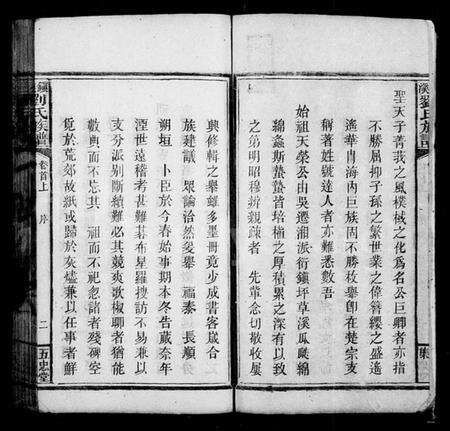 聖天子菁莪之風棫樸之化為名公巨卿者亦指
不勝屈抑子孫之繁世業之偉簪纓之盛遙
遙華胄海內巨族固不勝枚舉卽在楚宗支
稱著姓號達人者亦難悉數吾
始祖天榮公由吳遷湘派衍鎮坪草溪瓜瓞綿
綿螽斯蟄蟄皆培植之厚積累之深有以致
之第明昭穆辨親疎者 先輩念切敬收屢
與修輯之舉雖多墨冊竟少成書客歲合
族建議 眾論洽然爰舉 福泰 長順
朔垣 卜臣於今春始事期本冬告蕆奈年
湮世遠稽考甚難碁布星羅搜訪不易兼以
支分派別斷續難必其競爽歌椒聊者猶能
數典而不忘其 祖而不祀忽諸者殘碑空
覓於荒郊故紙或歸於灰燼兼以任事者鮮
劉氏族譜
卷首上 序 二 五忠堂
劉氏族譜